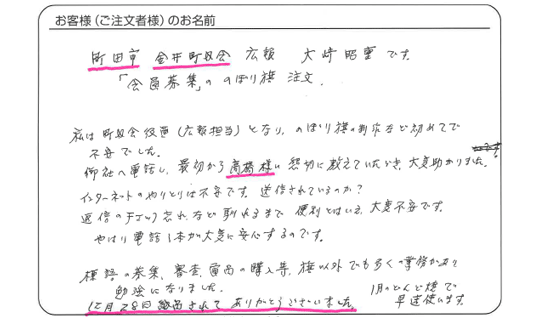 お客様（ご注文者様）のお名前
町田市 金井町内会 広報 大崎昭重です。
「会員募集」ののぼり旗 注文.
私は町内会役員（広報担当）となり、のぼり旗の対応など初めてで
不安でした。
御社へ電話し、最初から高橋様に懇切に教えていただき、大変助かりました。
インターネットのやりとりは不安です。送信されているのか？
返信のチェック忘れなど馴れるまで便利とはいえ、大変不安です。
やはり電話1本が大変に安心するのです。
標語の募集、審査、賞品の購入等、旗以外でも多くの業務があり
勉強になりました。
12月28日納品されてありがとうございました。
1月のどんど焼で
早速使います。